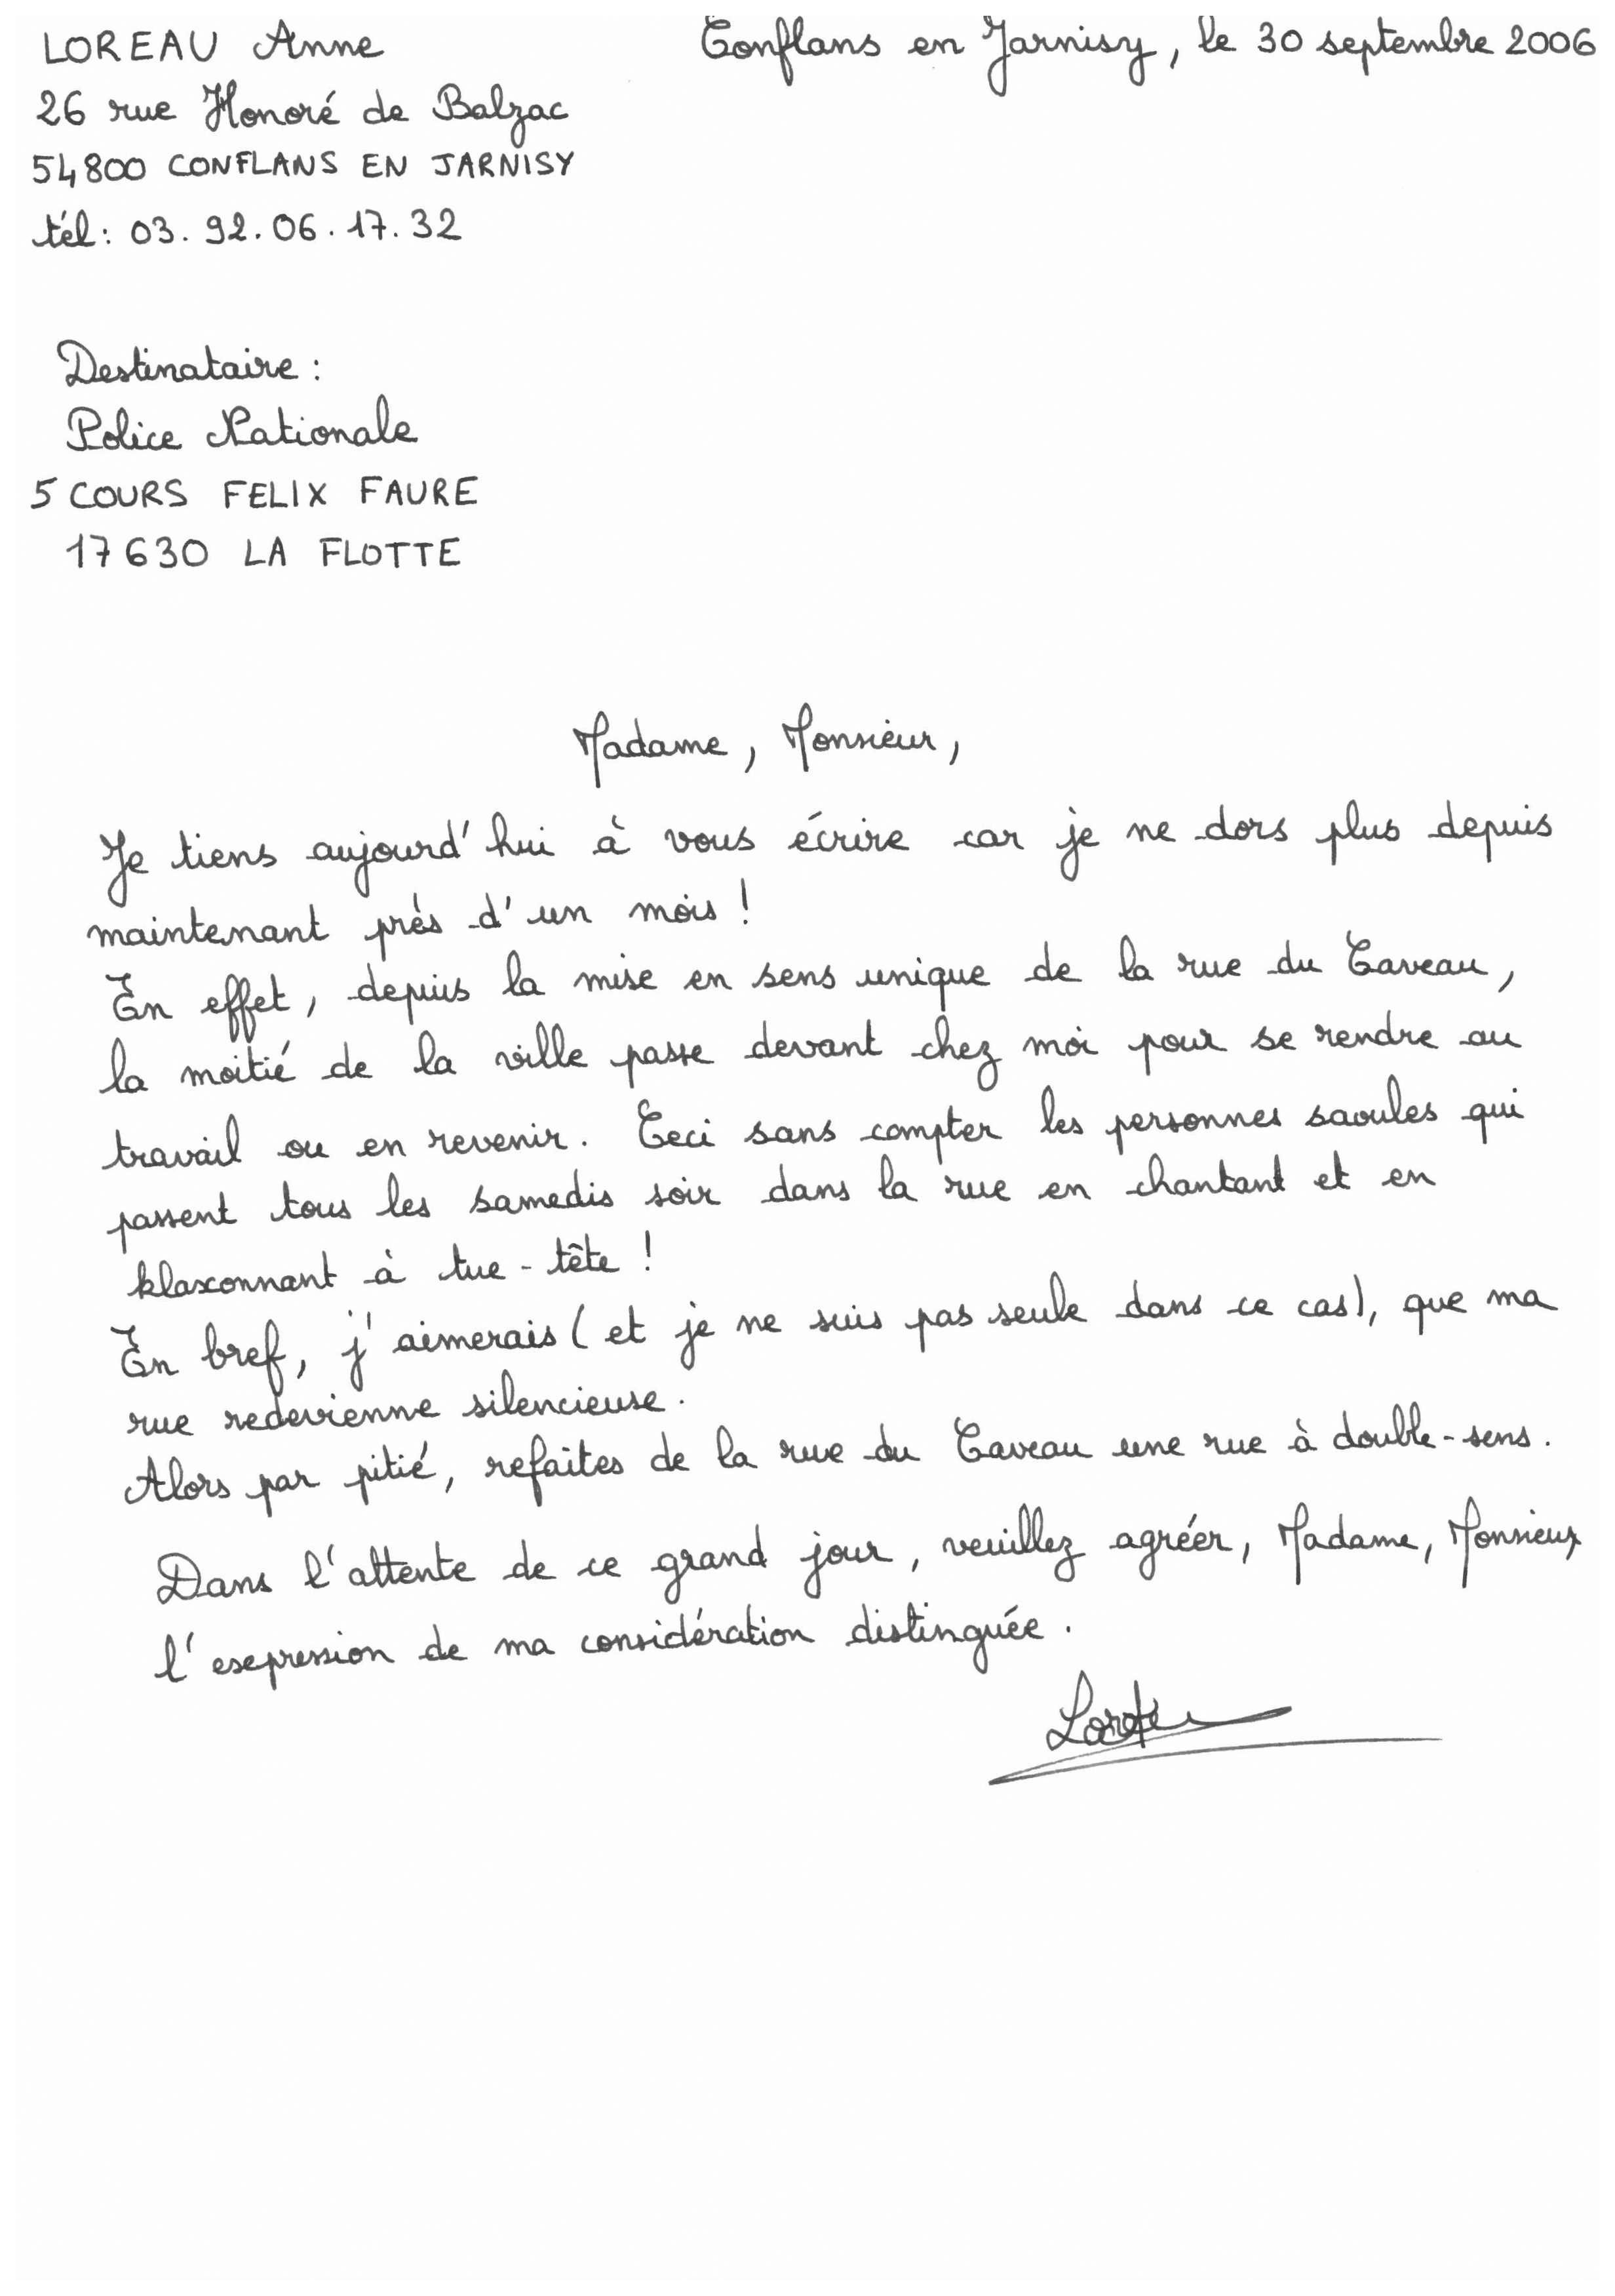 LOREAU Anne
Conflans en Jarnisy, le 30 septembre 2006
26 rue Honoré de Balzac
54800 CONFLANS EN JARNISY
tél : 03.92.06.17.32
Destinataire :
Police Nationale
5 COURS FELIX FAURE
17630 LA FLOTTE
Madame, Monsieur,
Je tiens aujourd'hui à vous écrire car je ne dors plus depuis
maintenant près d'un mois !
En effet, depuis la mise en sens unique de la rue du Caveau,
la moitié de la ville passe devant chez moi pour se rendre au
travail ou en revenir. Ceci sans compter les personnes saoules qui
passent tous les samedis soir dans la rue en chantant et en
klaxonnant à tue-tête !
En bref, j'aimerais (et je ne suis pas seule dans ce cas), que ma
rue redevienne silencieuse.
Alors par pitié, refaites de la rue du Caveau une rue à double-sens.
Dans l'attente de ce grand jour, veuillez agréer, Madame, Monsieur,
l'expression de ma considération distinguée.